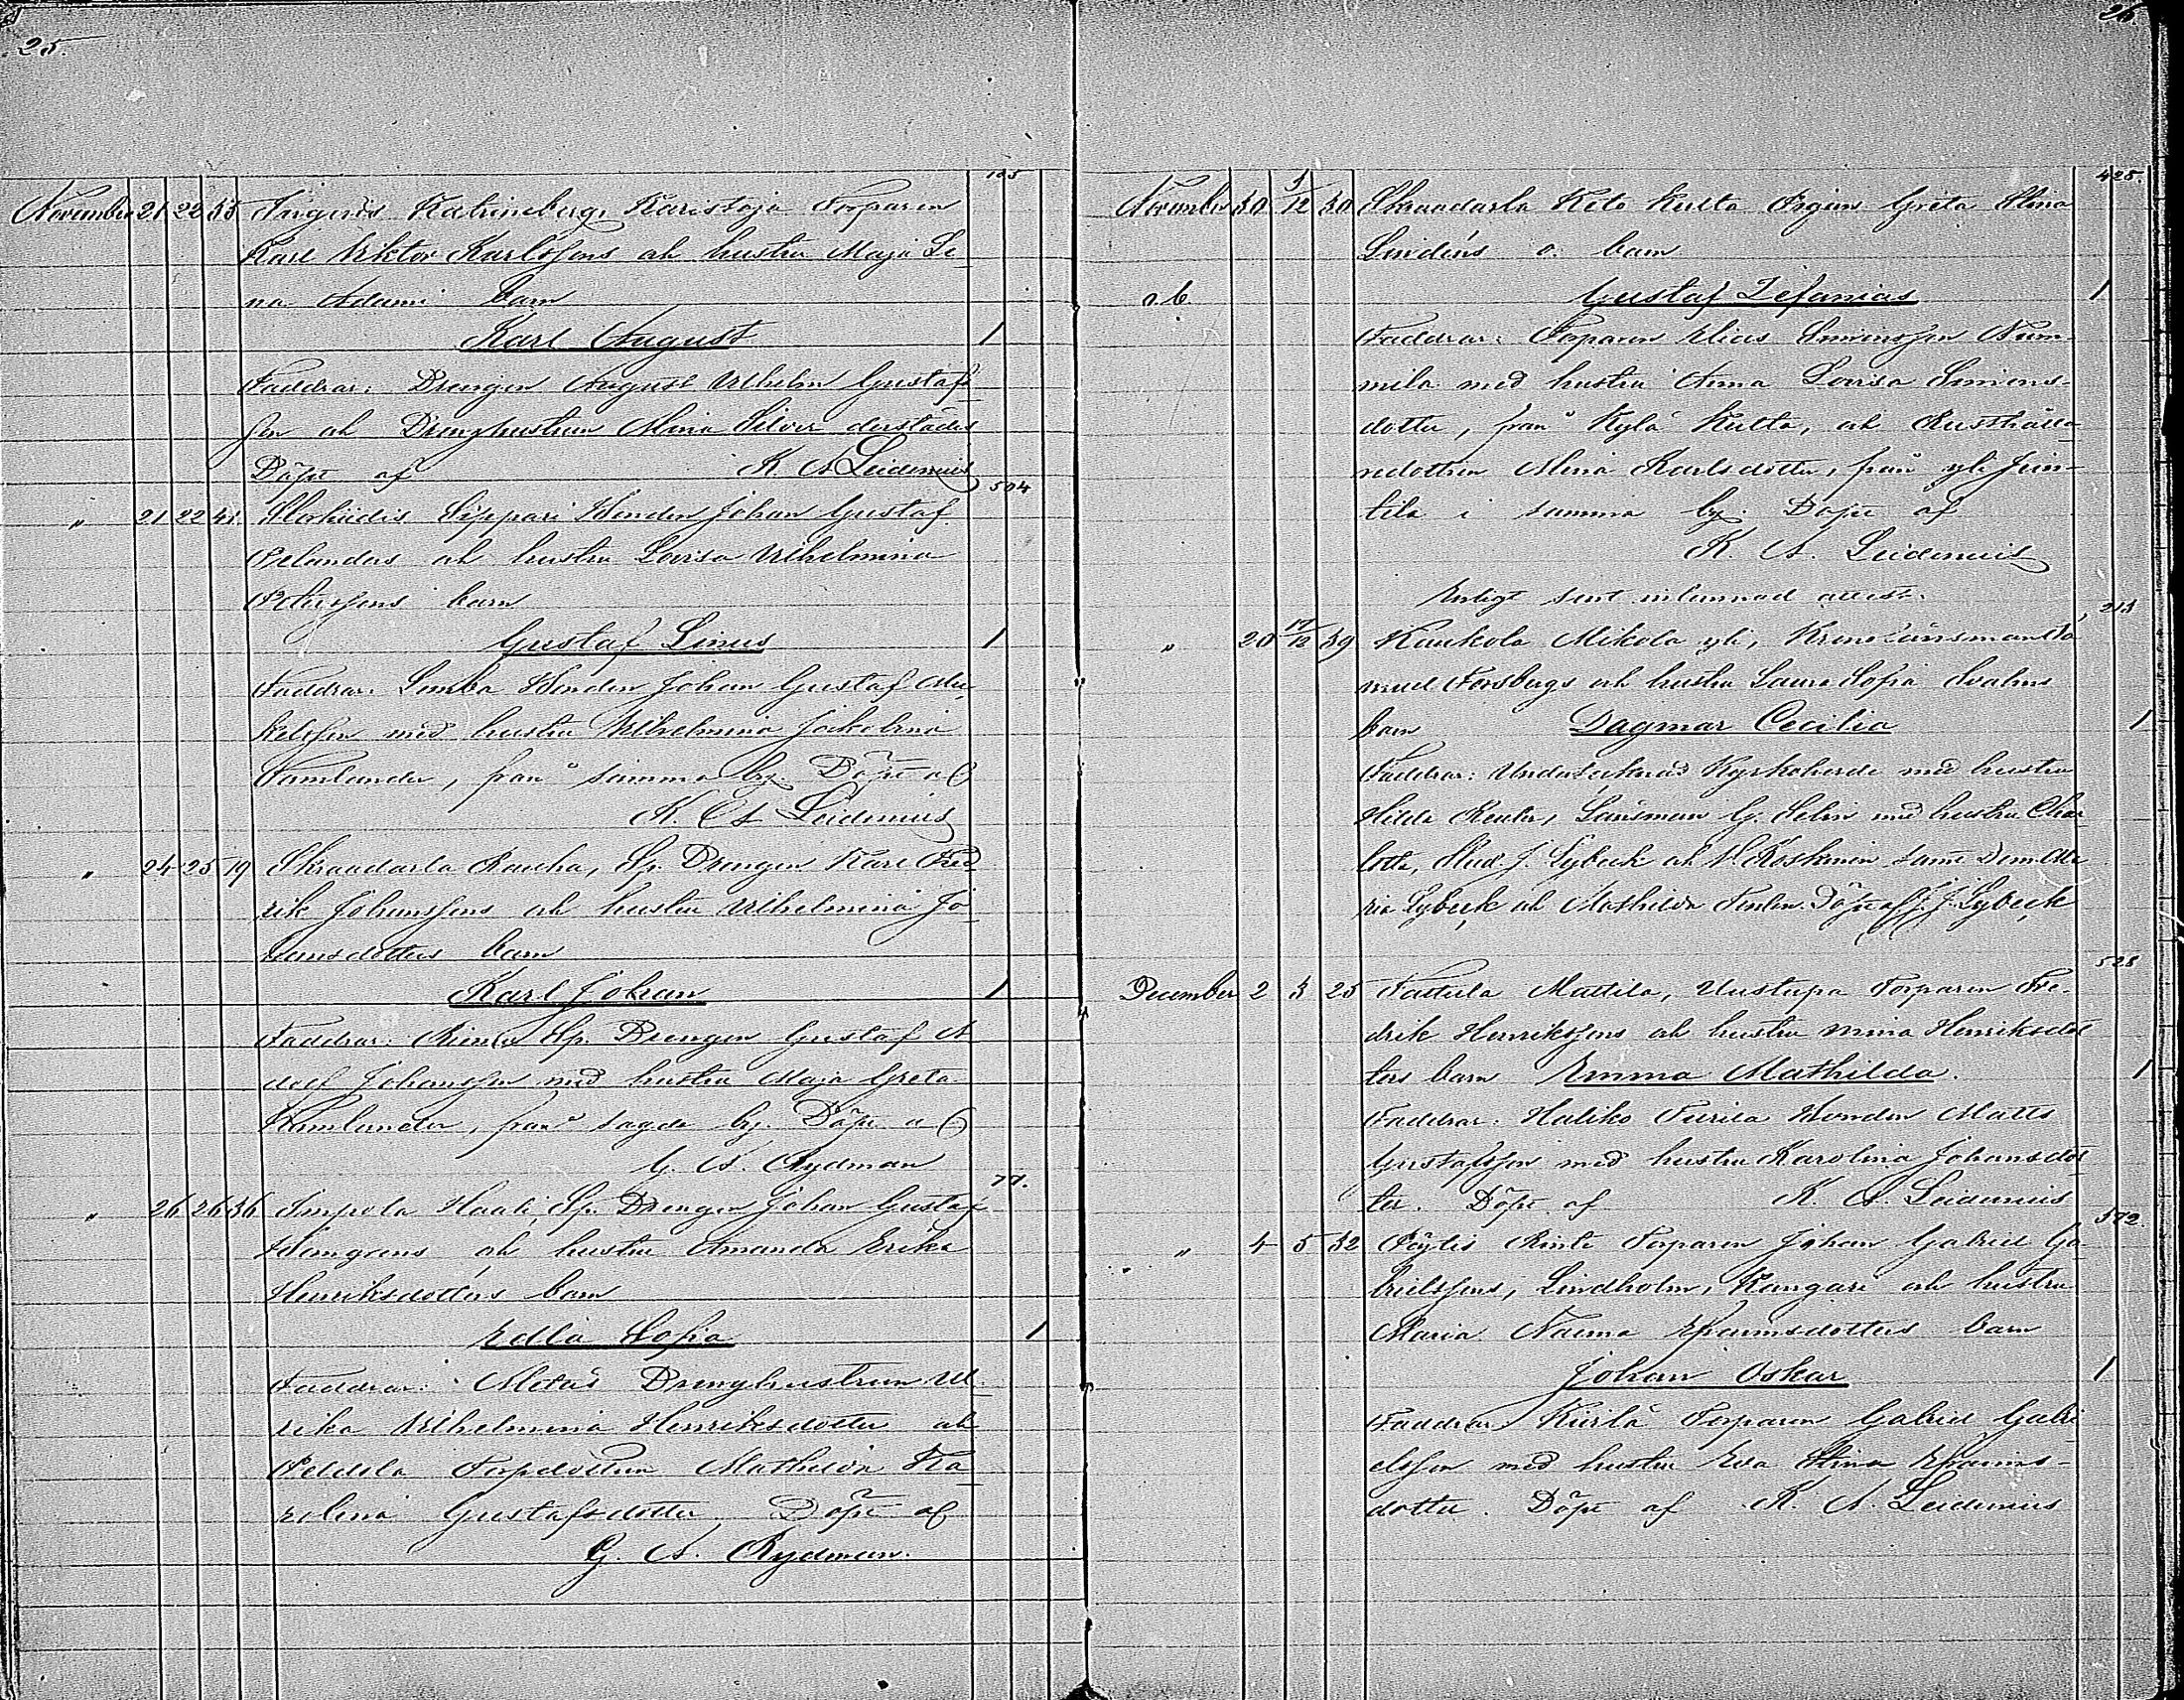 25.
105
November 21 22 33 Jugenäs Katrineberg, Karistoja Torparen
Karl Viktor Karlssons och hustru Maja Le-
na Adami barn
Karl August 1
Faddrar: Drengen August Vilhelm Gustafs-
son och Drenghustrun Mina Silver derstädes
Döpt af K. A. Leidenius
504
" 21 22 41 Sippari Bonden Johan Gustaf
Pelanders och hustru Lovisa Vilhelmina
barn
Gustaf Linus 1
Faddrar: Bonden Johan Gustaf Mi-
kelsson med hustru Vilhelmina Jakobina
Tamlander, från samma by. Döpt af
K. A. Leidenius
" 24 25 19 Skraadarla Raucha, Sp. Drengen Karl Fred-
rik Johanssons och hustru Vilhelmina Jo-
hansdotters barn
Karl Johan 1
Faddrar: Sp. Drengen Gustaf A-
dolf Johansson med hustru Maja Greta
Tamlander, från sagde by. Döpt af
G. A. Rydman
77.
" 26 26 36 Impola Haali, Sp. Drengen Johan Gustaf
Hemgrens och hustru Amanda Erika
Henriksdotters barn
Edla Sofia 1
Faddrar: Drenghustrun Ul-
rika Vilhelmina Henriksdotter och
Peddola Torpdottern Mathilda Ka-
rolina Gustafsdotter. Döpt af
G. A. Rydman.
26.
425.
November 30 1/12 30 Skraadarla Keto Kulta Pigan Greta Stina
Lindéns o. barn
o. b. Gustaf Zefanias 1
Faddrar: Torparen Elias Simonsson Num-
mila med hustru Anna Lovisa Simons-
dotter, från Kylä Kulta, och Rusthålla-
redottren Mina Karlsdotter, från yli Jun-
tila i samma by. Döpt af
K. A. Leidenius
Enligt sent inlemnad attest.
213
" 20 17/12 39 Kaukola Mikola yli, Krono Länsman Sa-
muel Forsbergs och hustru Laura Sofia Svahns
barn Dagmar Cecilia 1
Faddrar: Undertecknad Kyrkoherde med hustru
Hilda Reuter, Länsman G. Selin med hustru Char-
lotta, Stud. J. Lybeck och V. Koskinen samt Dem. Ma-
ria Lybeck och Mathilda Döpt af J. J. Lybeck
528
December 2 3 25 Tattula Mattila, Uustupa Torparen Fre-
drik Henrikssons och hustru Mina Henriksdot-
ters barn Emma Mathilda. 1
Faddrar: Haliko Turila Bonden Matts
Gustafsson med hustru Karolina Johansdot-
ter. Döpt af K. A. Leidenius
572.
" 4 5 32 Pöytis Rinti Torparen Johan Gabriel Ga-
brielssons, Lindholm, Kangari och hustru
Maria Naema Efraimsdotters barn
Johan Oskar 1
Faddrar: Kiirlä Torparen Gabriel Gabri-
elsson med hustru Eva Stina Efraims-
dotter. Döpt af K. A. Leidenius